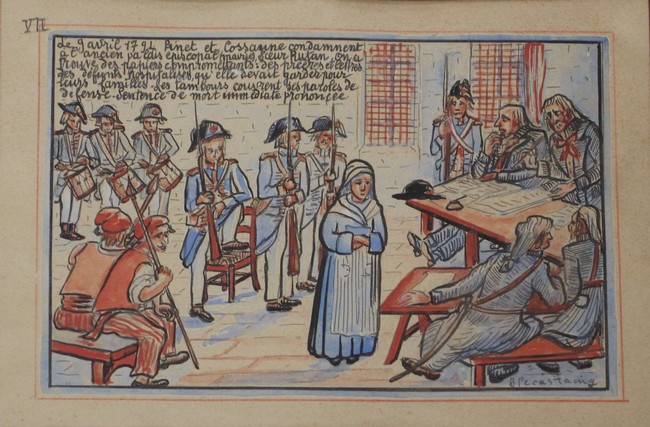 VII
Le 9 avril 1794 Pinet et Cossaune condamnent
à l'ancien palais épiscopal (mairie) Sœur Rutan. On a
trouvé des papiers compromettants: des prières et lettres
des défunts hospitalisés, qu'elle devait garder pour
leurs familles. Les tambours couvrent ses paroles de
défense. Sentence de mort immédiate prononcée